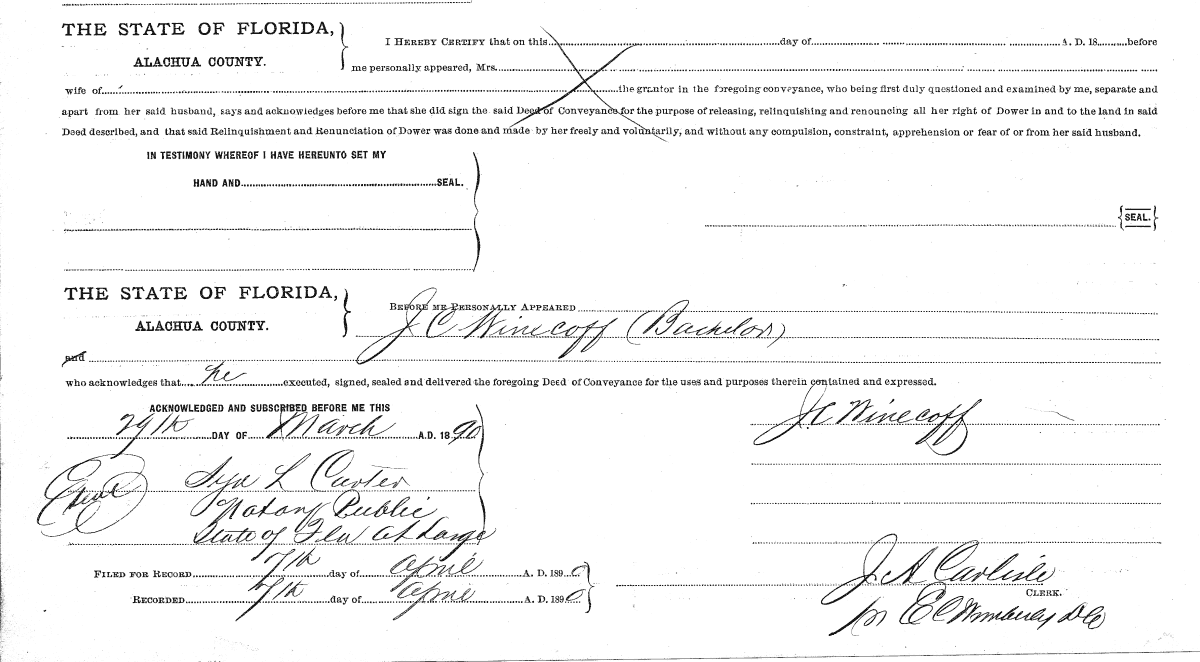 THE STATE OF FLORIDA,
ALACHUA COUNTY.
I HEREBY CERTIFY that on this day of A. D. 18 before
me personally appeared, Mrs.
wife of the grantor in the foregoing conveyance, who being first duly questioned and examined by me, separate and
apart from her said husband, says and acknowledges before me that she did sign the said Deed of Conveyance for the purpose of releasing, relinquishing and renouncing all her right of Dower in and to the land in said
Deed described, and that said Relinquishment and Renunciation of Dower was done and made by her freely and voluntarily, and without any compulsion, constraint, apprehension or fear of or from her said husband.
IN TESTIMONY WHEREOF I HAVE HEREUNTO SET MY
HAND AND SEAL.
SEAL.
THE STATE OF FLORIDA,
ALACHUA COUNTY.
BEFORE ME PERSONALLY APPEARED
J C Winecoff (Bachelor)
and
who acknowledges that he executed, signed, sealed and delivered the foregoing Deed of Conveyance for the uses and purposes therein contained and expressed.
ACKNOWLEDGED AND SUBSCRIBED BEFORE ME THIS
29th DAY OF March A.D. 1890
J C Winecoff
Seal
L Carter
Notary Public
State of Fla At Large
FILED FOR RECORD 7th day of April A. D. 1890
RECORDED 7th day of April A. D. 1890
J. A Carlisle
CLERK.
pr E C Wimberly D C